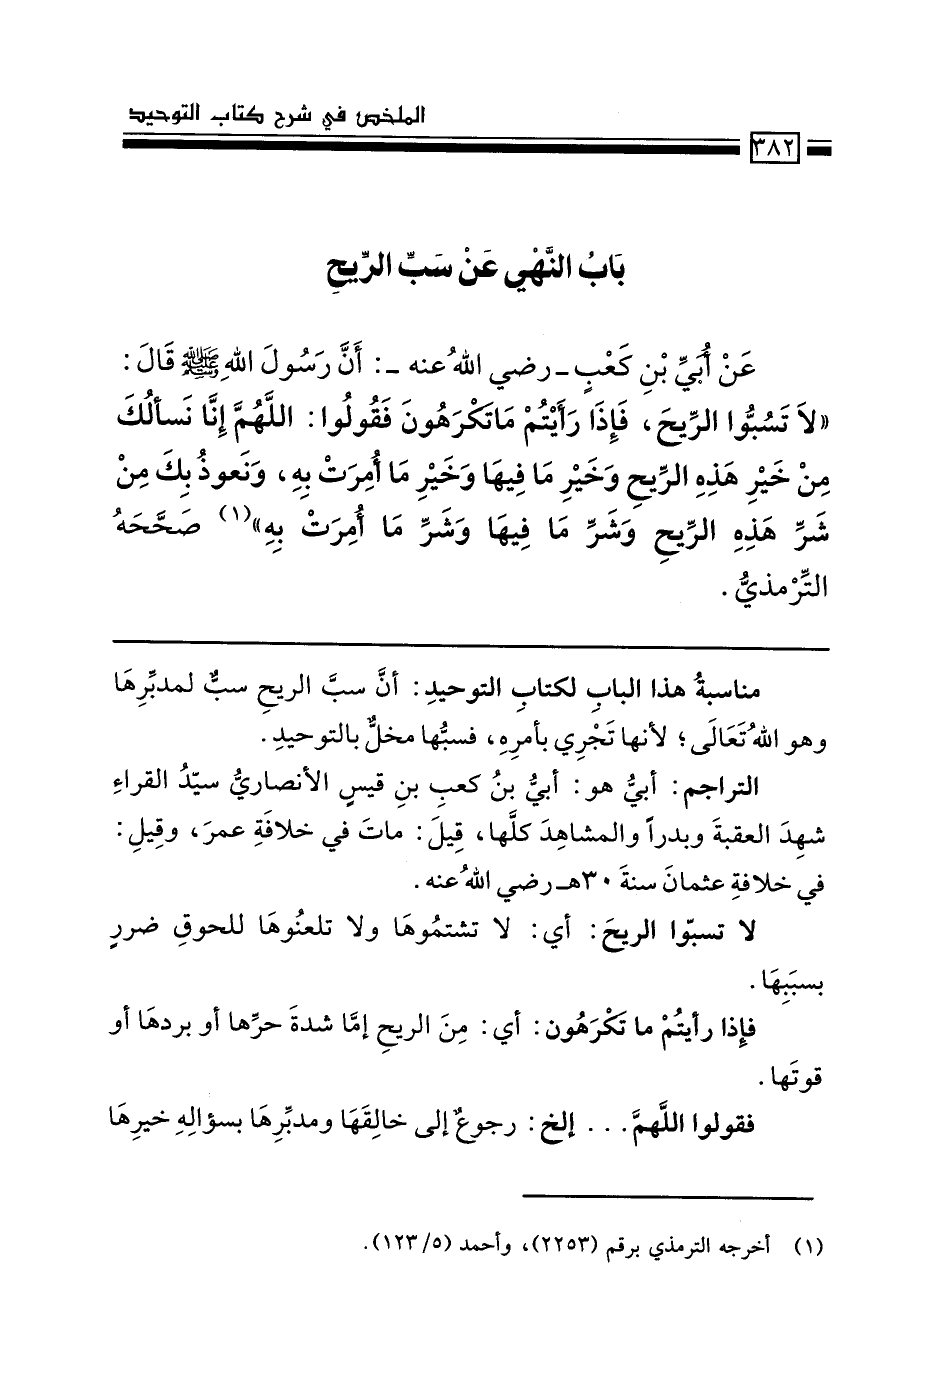 الملخص في شرح كتاب التوحيد
٣٨٢
بَابُ النَّهْيِ عَنْ سَبِّ الرِّيحِ
عَنْ أُبَيِّ بْنِ كَعْبٍ ـ رضي اللهُ عنه ـ: أَنَّ رَسُولَ اللهِ ﷺ قَالَ:
«لاَ تَسُبُّوا الرِّيحَ، فَإِذَا رَأَيْتُمْ مَاتَكْرَهُونَ فَقُولُوا: اللَّهُمَّ إِنَّا نَسأَلُكَ
مِنْ خَيْرِ هَذِهِ الرِّيحِ وَخَيْرِ مَا فِيهَا وَخَيْرِ مَا أُمِرَتْ بِهِ، وَنَعوذُ بِكَ مِنْ
شَرِّ هَذِهِ الرِّيحِ وَشَرِّ مَا فِيهَا وَشَرِّ مَا أُمِرَتْ بِهِ»(١) صَحَّحَهُ
التِّرْمذيُّ.
مناسبةُ هذا البابِ لكتابِ التوحيدِ: أنَّ سبَّ الريحِ سبٌّ لمدبِّرِهَا
وهو اللهُ تَعَالَى؛ لأنها تَجْرِي بأمرِهِ، فسبُّها مخلٌّ بالتوحيدِ.
التراجم: أبيُّ هو: أبيُّ بنُ كعبِ بنِ قيسٍ الأنصاريُّ سيّدُ القراءِ
شهِدَ العقبةَ وبدراً والمشاهِدَ كلَّها، قيلَ: ماتَ في خلافَةِ عمرَ، وقِيلِ:
في خلافةِ عثمانَ سنةَ ٣٠هـ رضي اللهُ عنه.
لا تسبّوا الريحَ: أي: لا تشتمُوهَا ولا تلعنُوهَا للحوقِ ضررٍ
بسبَبِهَا.
فإذا رأيتُمْ ما تَكْرَهُون: أي: مِنَ الريحِ إمَّا شدةَ حرِّها أو بردهَا أو
قوتَها.
فقولوا اللَّهمَّ... إلخ: رجوعٌ إلى خالِقَهَا ومدبِّرِهَا بسؤالِهِ خيرِهَا
(١) أخرجه الترمذي برقم (٢٢٥٣)، وأحمد (٥/ ١٢٣).